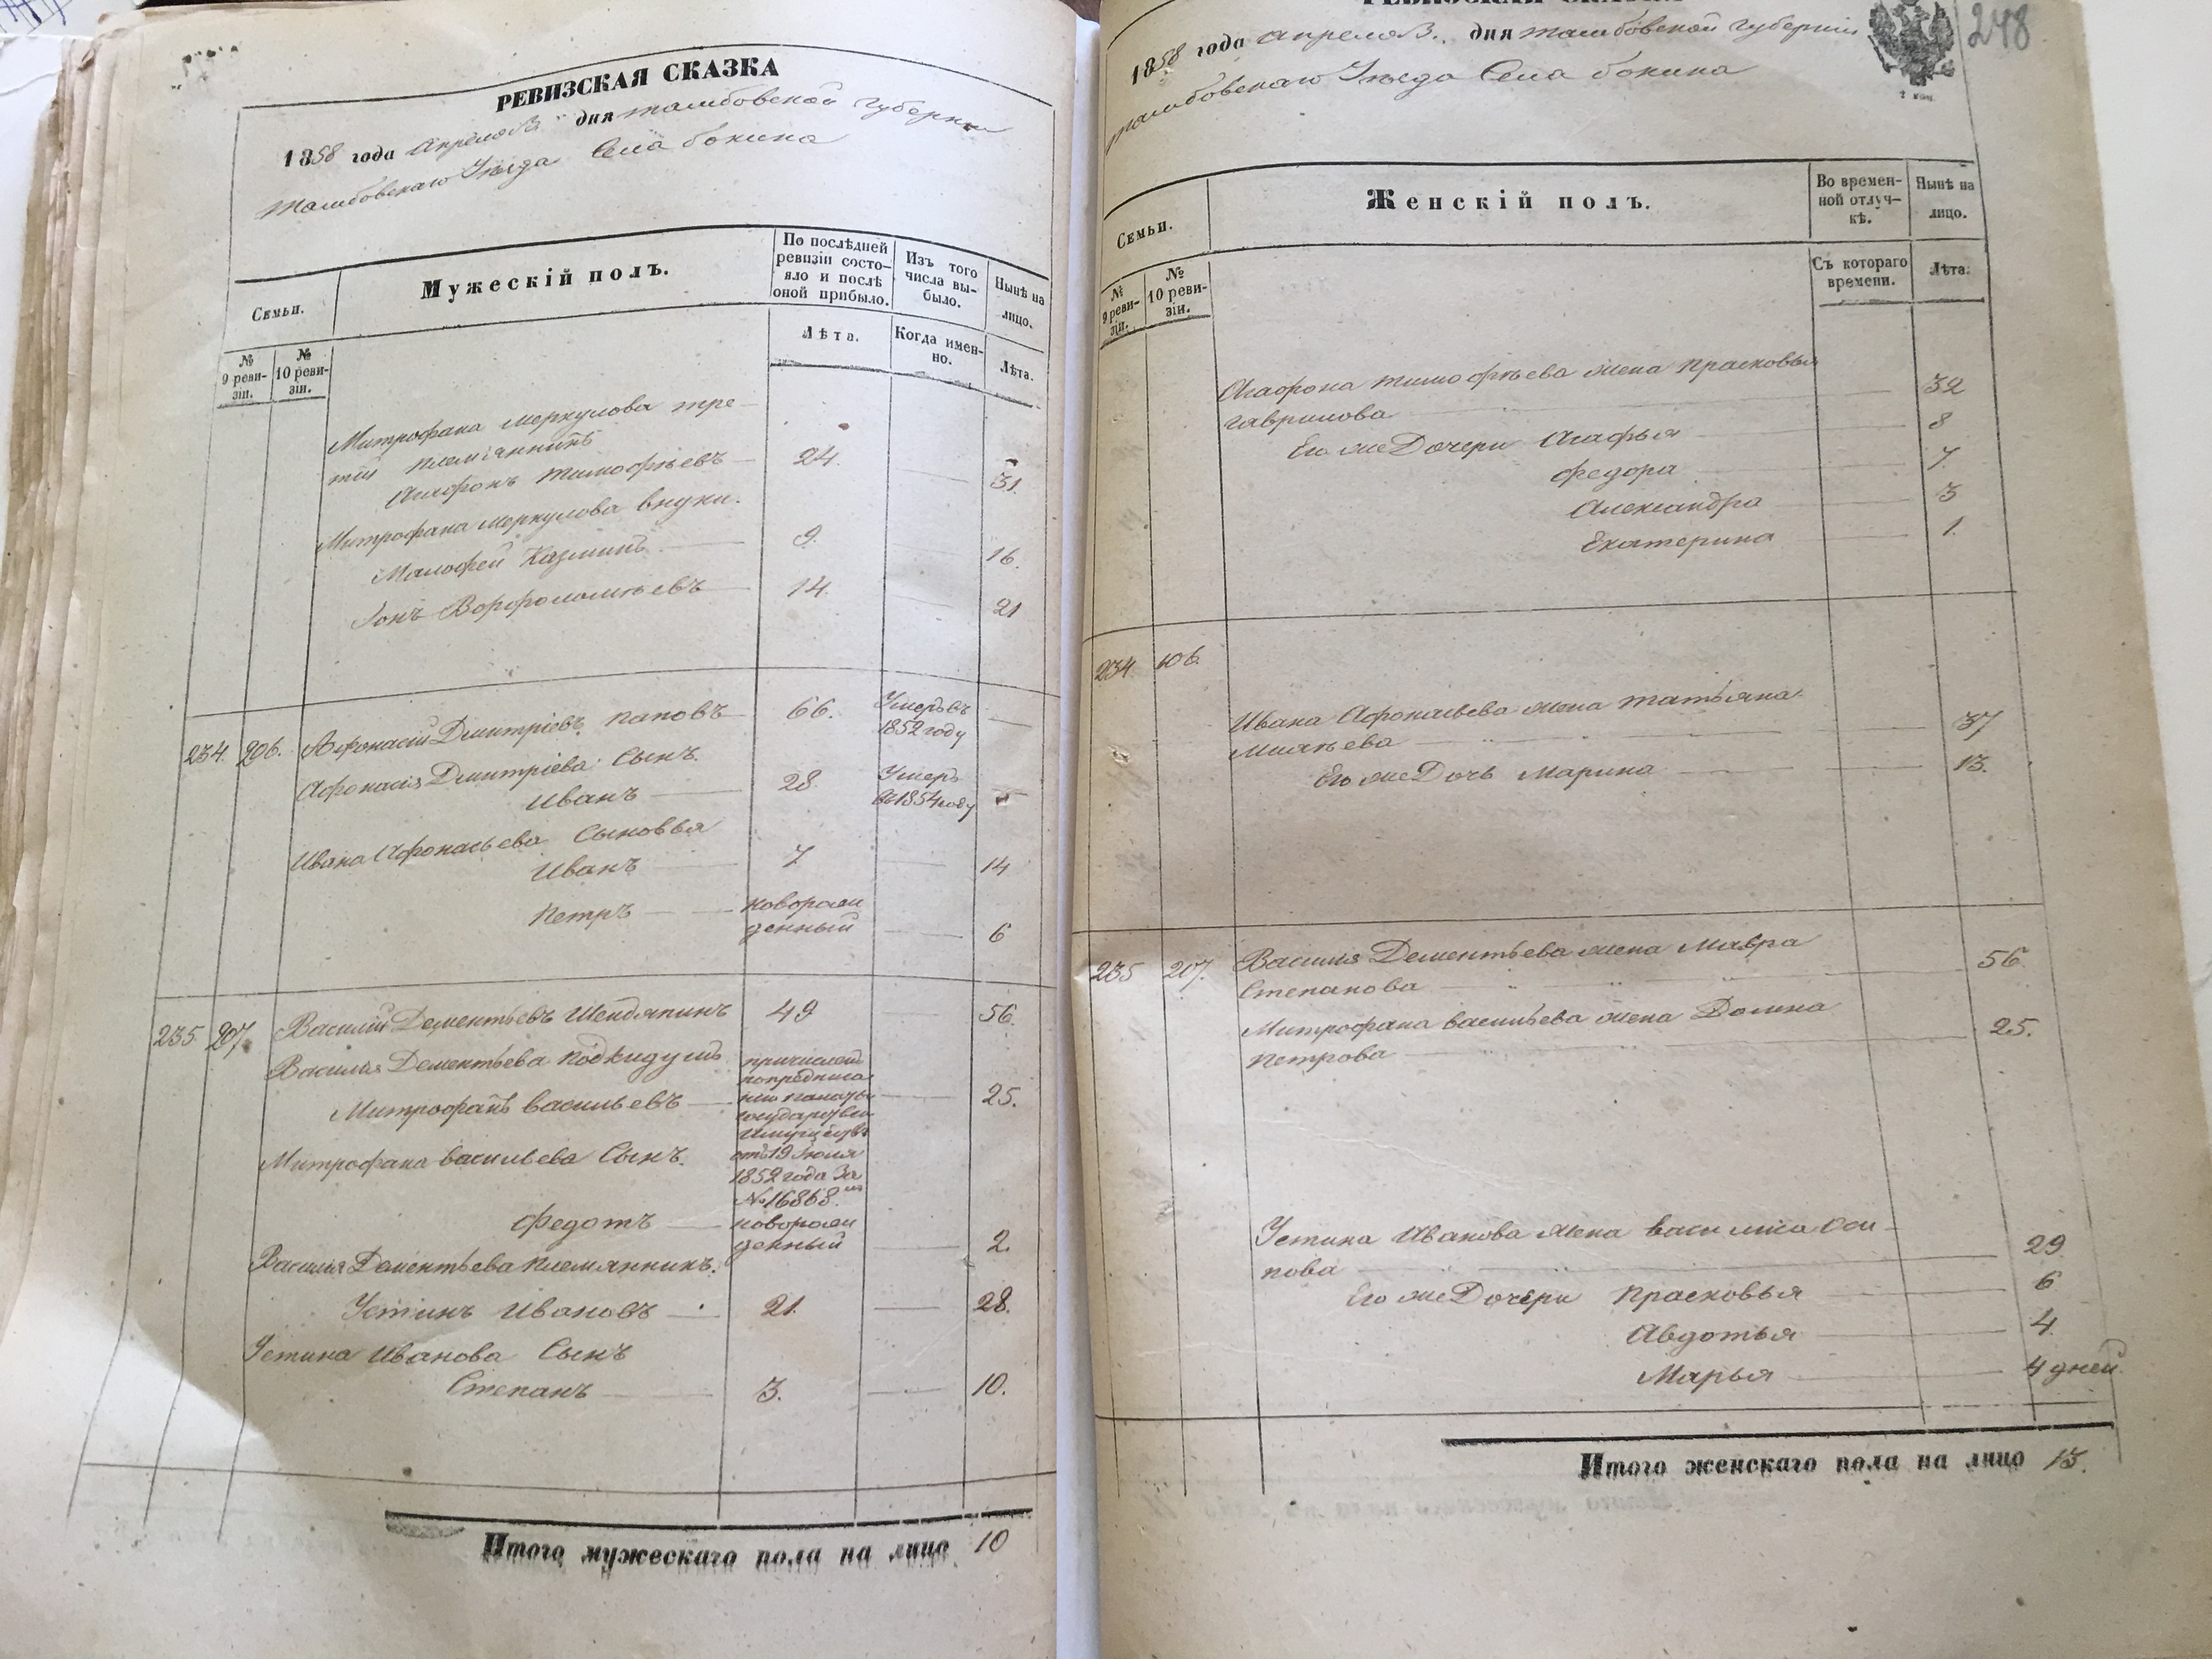 РЕВИЗСКАЯ СКАЗКА
1858 года Апреля дня Тамбовской Губернии
Тамбовскаго Уѣзда Села Бокина
Семьи.
Мужескій полъ.
По послѣдней ревизіи состояло и послѣ оной прибыло.
Изъ того числа выбыло.
Нынѣ на лицо.
№ 9 ревизіи.
№ 10 ревизіи.
Лѣта.
Когда именно.
Лѣта.
Митрофана Меркулова тре-
тій племянникъ
Агафонъ Тимофѣевъ 24. 31.
Митрофана Меркулова внуки.
Малофей Казминъ 9. 16.
Іонъ Ворфоломѣевъ 14. 21
234. 206. Афонасій Дмитріевъ Поповъ 66. Умеръ въ 1852 году
Афонасія Дмитріева Сынъ.
Иванъ 28 Умеръ въ 1854 году
Ивана Афонасьева Сыновья
Иванъ 7 14
Петръ новорож денный 6
235 207. Василий Дементьевъ Шендяпинъ 49 56.
Василья Дементьева Подкидушъ
Митрофанъ Васильевъ 25.
причислен
по предписа
нію палаты
государствен
имуществъ
отъ 19 Июля
1852 года За
№ 16868.
Митрофана Васильева Сынъ.
Федотъ новорож денный 2.
Василия Дементьева племянникъ.
Устинъ Ивановъ 21. 28.
Устина Иванова Сынъ
Степанъ 3. 10.
Итого мужескаго пола на лицо 10
РЕВИЗСКАЯ СКАЗКА
248
1858 года Апреля дня Тамбовской Губерніи
Тамбовскаго Уѣзда Села Бокина
Семьи.
Женскій полъ.
Во временной отлучкѣ.
Нынѣ на лицо.
№ 9 ревизіи.
№ 10 ревизіи.
Съ котораго времени.
Лѣта.
Агафона Тимофѣева жена Прасковья
Гаврилова 32
Его же Дочери Агафья 8
Федора 7.
Александра 3
Екатерина 1.
234 106.
Ивана Афонасьева жена Татьяна
37
Его же Дочь Марина 13.
235 207. Василия Дементьева жена Мавра
Степанова 56.
Митрофана Васильева жена Домна
Петрова 25.
Устина Иванова жена Василиса Оси-
пова 29
Его же Дочери Прасковья 6
Авдотья 4.
Марья 4 дней.
Итого женскаго пола на лицо 13.